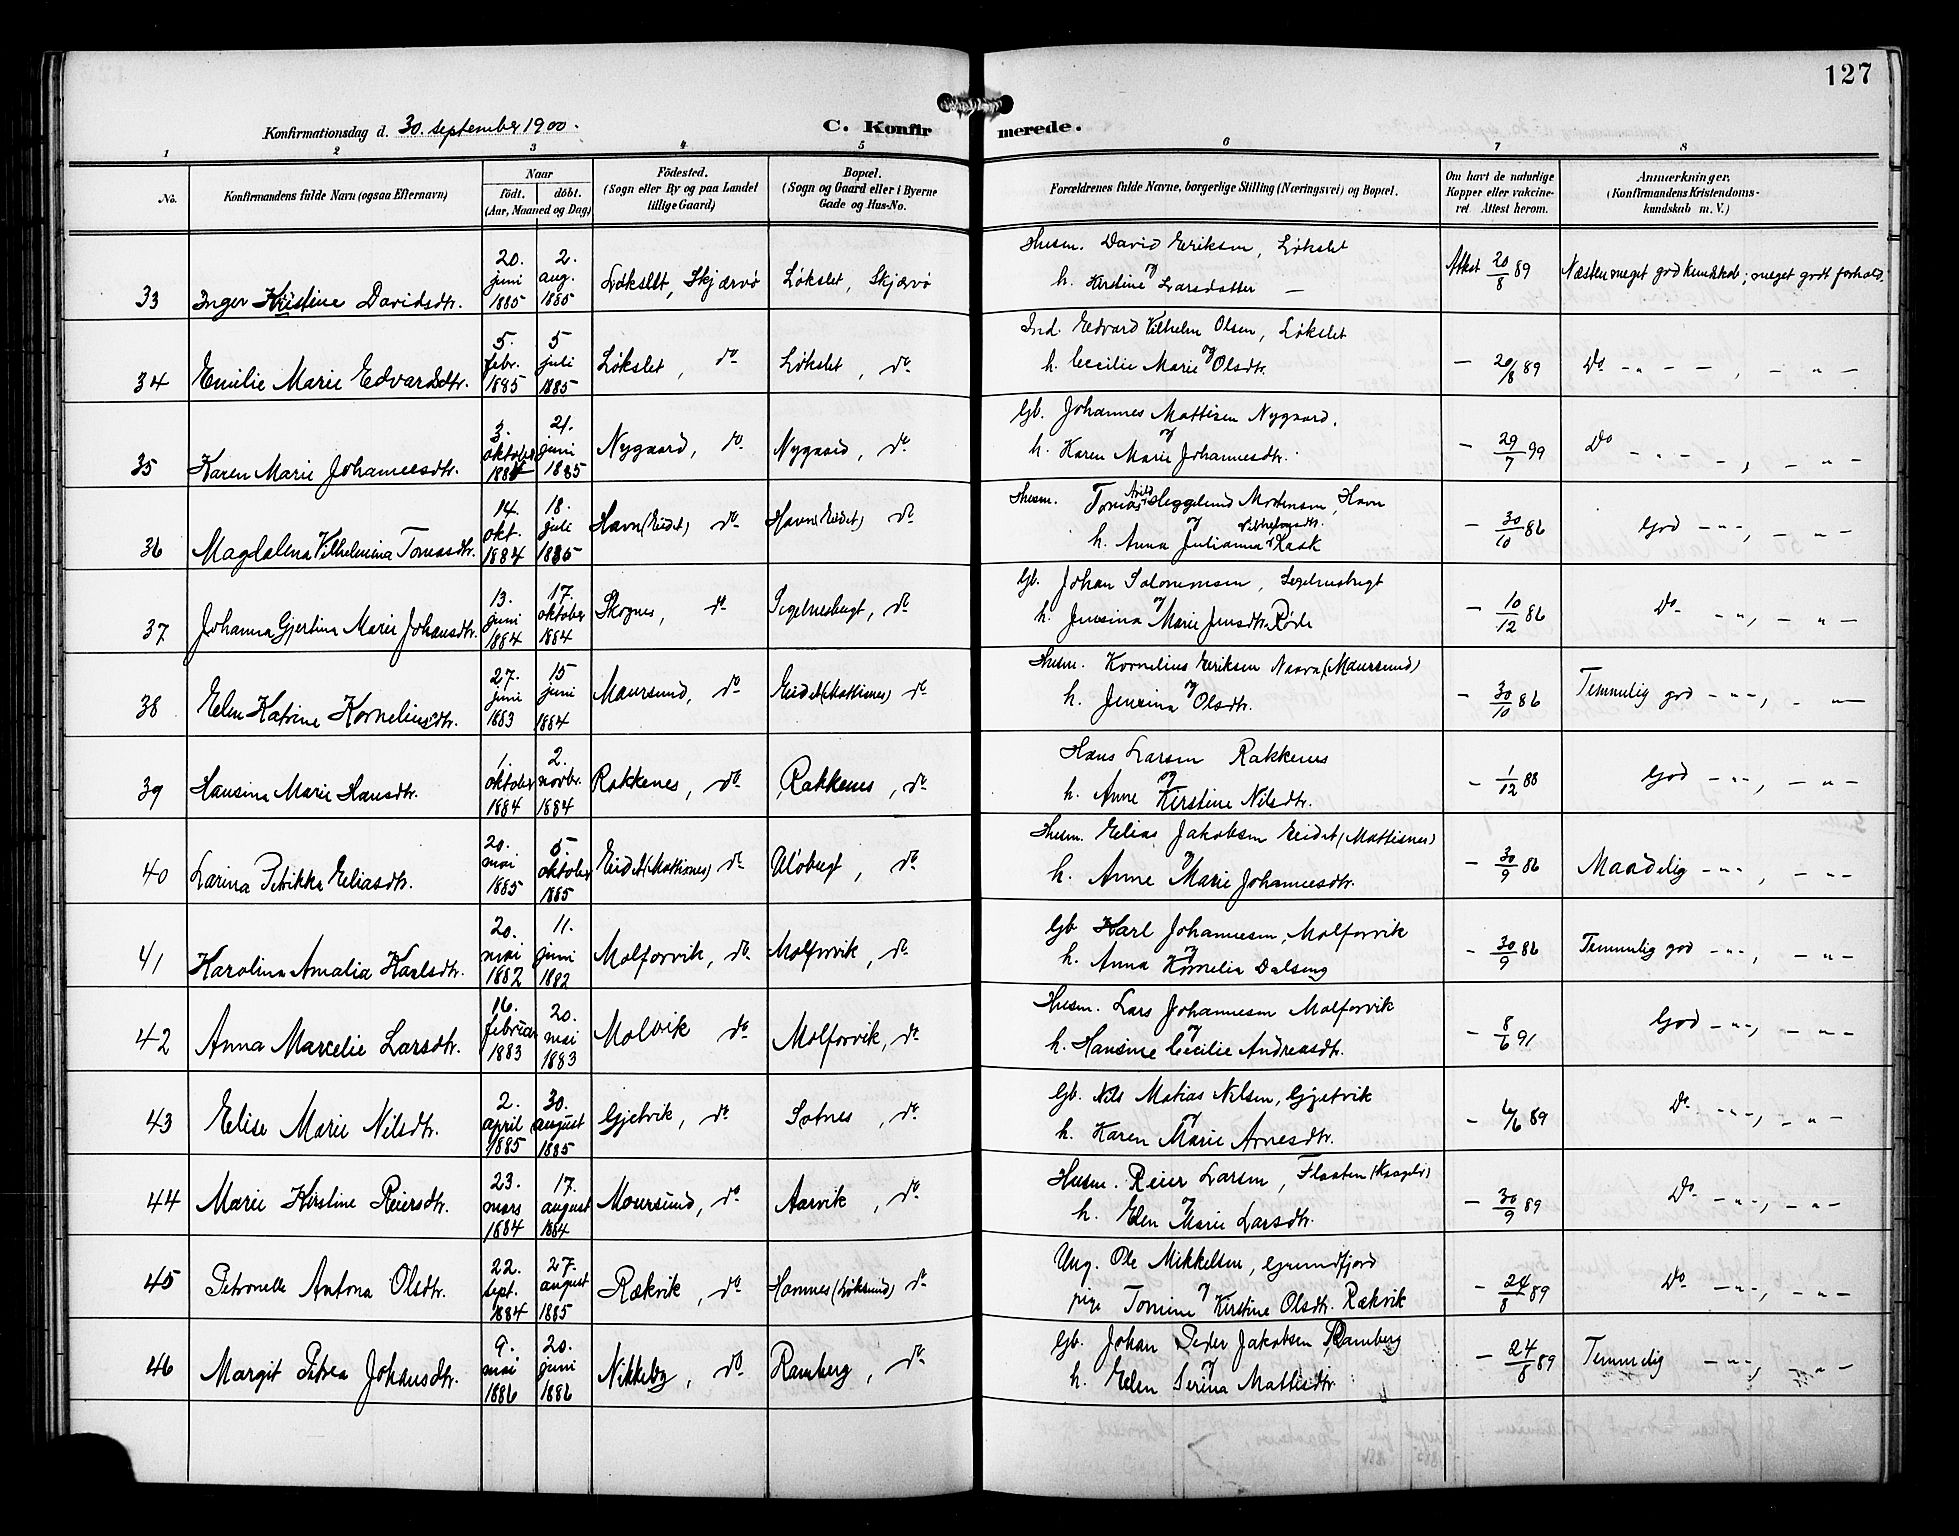 127
Konfirmationsdag d. 30. september 1900. C. Konfirmerede.
1 2 3 4 5 6 7 8
No. Konfirmandens fulde Navn (ogsaa Efternavn) Naar födt. döbt. (Aar, Maaned og Dag) Födested. (Sogn eller By og paa Landet tillige Gaard) Bopæl. (Sogn og Gaard eller i Byerne Gade og Hus-No. Forældrenes fulde Navne, borgerlige Stilling (Næringsvei) og Bopæl. Om havt de naturlige Kopper eller vakcineret. Attest herom. Anmærkninger. (Konfirmandens Kristendomskundskab m. V.)
33 Inger Kristine Davidsdtr. 20. juni 1885 2. aug. 1885 Løkslet, Skjærvø Løkslet, Skjærvø Husm. David Eriksen, Løkslet og h. Kirstine Larsdatter — Attest 20/8 89 Næsten meget god kundskab; meget godt forhold.
34 Emilie Marie Edvardsdtr. 5. febr. 1885 5 juli 1885 Løkslet, do Løkslet, do Ind. Edvard Vilhelm Olsen, Løkslet og h. Cecilie Marie Olsdtr. — 20/8 89 Do — " — — , — " —
35 Karen Marie Johannesdtr. 3. oktober 1884 21. juni 1885 Nygaard, do Nygaard, do Gb. Johannes Mattisen Nygaard. og h. Karen Marie Johannesdtr. — 29/7 99 Do — " — — , — " —
36 Magdalena Vilhelmina Tomasdtr. 14. okt. 1884 18. juli 1885 Havn (Eidet) do Havn (Eidet) do Husm. Tomas Arild Heggelund Mortensen, Havn og h. Anna Julianna Kask — 30/10 86 God — " — , — " —
37 Johanna Gjertina Marie Johansdtr. 13. juni 1884 17. oktober 1884 Skognes, do Segelnesbugt, do Gb. Johan Salomonsen, Segelnesbugt og h. Jensina Marie Jensdtr. Røde — 10/12 86 Do — " — , — " —
38 Elen Katrine Korneliusdtr. 27. juni 1883 15 juni 1884 Maursund, do Eidet (Mattisnes) do Husm. Kornelius Eriksen Navra (Maursund) og h. Jensina Olsdtr. — 30/10 86 Temmelig god — " — , — " —
39 Hansina Marie Hansdtr. 1. oktober 1884 2. novbr. 1884 Rakkenes, do Rakkenes, do Hans Larsen Rakkenes og h. Anne Kirstine Nilsdtr. — 1/12 88 God — " — , — " —
40 Larina Petrikka Eliasdtr. 20. mai 1885 5. oktober 1885 Eidet (Mattisnes) do Uløbugt, do Husm. Elias Jakobsen Eidet (Mattisnes) og h. Anne Marie Johannesdtr. — 30/9 86 Maadelig — " — , — " —
41 Karolina Amalia Karlsdtr. 20. mai 1882 11. juni 1882 Molforvik, do Molforvik, do Gb Karl Johannesen, Molforvik og h. Anna Kornelia Dalseng — 30/9 86 Temmelig god — " — , — " —
42 Anna Marcelie Larsdtr. 16. februar 1883 20. mai 1883 Molvik do Molforvik, do Husm. Lars Johannesen Molforvik og h. Hansine Cecilie Andreasdtr. — 8/6 91 God — " — , — " —
43 Elise Marie Nilsdtr. 2. april 1885 30. august 1885 Gjetvik, do Sotnes, do Gb. Nils Matias Nilsen, Gjetvik og h. Karen Marie Arnesdtr. — 6/6 89 Do — " — , — " —
44 Marie Kirstine Reiersdtr. 23. mars 1884 17. august 1884 Maursund, do Aarvik, do Husm. Reier Larsen, Flaaten (Kaagen) og h. Elen Marie Larsdtr. — 30/9 89 Do — " — , — " —
45 Petronelle Antona Olsdtr. 22. sept. 1884 27. august 1885 Rækvik, do Hamnes (Løksund) do Ung. Ole Mikkelsen, Grundfjord og pige Tomine Kirstine Olsdtr. Rækvik — 24/8 89 Do — " — , — " —
46 Margit Petrea Johansdtr. 9. mai 1886 20. juni 1886 Nikkeby, do Ramberg, do Gb. Johan Peder Jakobsen Ramberg og h. Elen Serina Mattisdtr — 24/8 89 Temmelig — " — , — " —